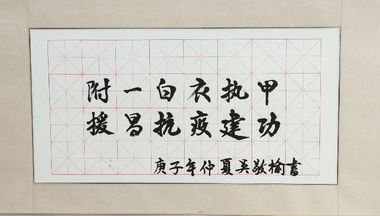 附一白衣执甲
援昌抗疫建功
庚子年仲夏吴敬榆书